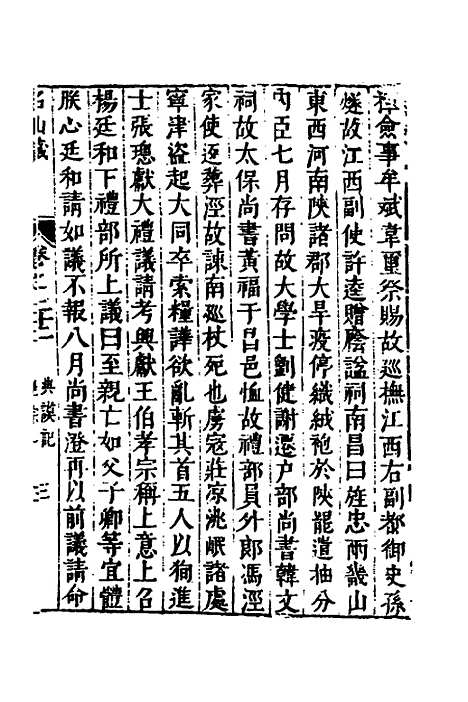 僉事牟斌韋璽祭賜故巡撫江西右副都御史孫
燧故江西副使許逵贈廕諡祠南昌曰旌忠兩畿山
東西河南陝諸郡大旱疫停織絨袍於陝罷道抽分
內臣七月存問故大學士劉健謝遷戶部尚書韓文
祠故太保尚書黃福于昌邑恤故禮部員外郎馮涇
家使返葬涇故諫南巡杖死也虜寇莊涼洮岷諸處
寧津盜起大同卒索糧譁欲亂斬其首五人以狥進
士張璁獻大禮議請考興獻王伯孝宗稱上意上召
楊廷和下禮部所上議曰至親亡如父子卿等宜體
朕心廷和請如議不報八月尚書澄再以前議請命
名山藏
卷之二十一
典謨記
三